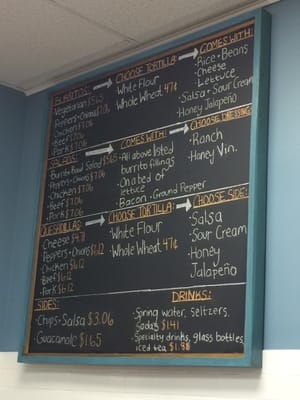 BURRITOS:
Vegetarian $5.65
Peppers + Onions $7.06
Chicken $7.06
Beef $7.06
Pork $7.06
CHOOSE TORTILLA:
White Flour
Whole Wheat 47¢
COMES WITH:
Rice + Beans
Cheese
Lettuce
Salsa + Sour Cream
Honey Jalapeño
SALADS:
Burrito Bowl Salad $5.65
Peppers + Onions $7.06
Chicken $7.06
Beef $7.06
Pork $7.06
COMES WITH:
All above listed
burrito fillings
On a bed of
lettuce
Bacon + Ground Pepper
CHOOSE DRESSING:
Ranch
Honey Vin.
QUESADILLAS:
Cheese $4.71
Peppers + Onions $6.12
Chicken $6.12
Beef $6.12
Pork $6.12
CHOOSE TORTILLA:
White Flour
Whole Wheat 47¢
CHOOSE SIDE:
Salsa
Sour Cream
Honey
Jalapeño
SIDES:
Chips + Salsa $3.06
Guacamole $1.65
DRINKS:
Spring water, seltzers,
sodas $1.41
Specialty drinks, glass bottles,
iced tea $1.88